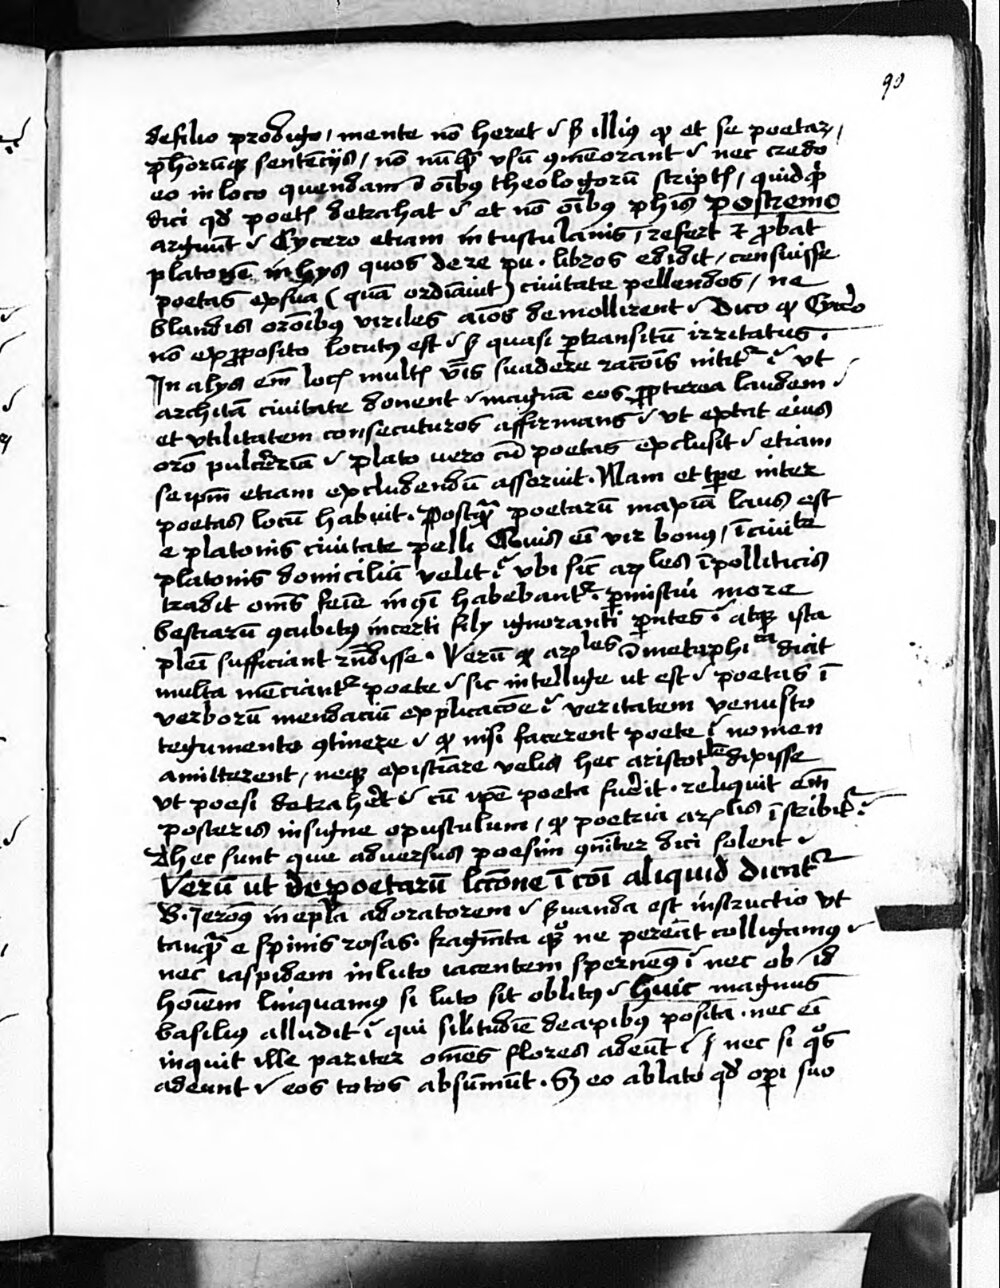 90
de filio prodigo / mente nō heret ˢ illiꝰ qꝫ et se poetaꝝ /
phōrūqꝫ sentēcijs / nō nūqᷓ vsū ꝯmeorant nec credo
eo in loco quendam ī oībꝰ theologorū sc͛ptꝭ / quidqᷓ
dici qd̓ poetꝭ detrahat et nō oībꝰ phīs postremo
arguūt Cycero etiam in tusculanis / refert ⁊ ꝓbat
platonē in hys quos de re pu. libros edidit / censuisse
poetas ex sua ( quā ordīauit ) ciuitate pellendos / ne
blandis orōibꝰ viriles aīos demollirent Dico qꝫ Cycero
nō ex ꝓposito locutꝰ est ꝫ quasi ꝑ transitū irritatus
In alys em̄ locꝭ multꝭ suadere racōīs nitit᷑ vt
architā ciuitate donent magnā eos ꝓpterea laudem
et vtilitatem consecuturos affirmans vt extat eius
orō pulcerīa plato uero cū poetas exclusit etiam
se ipm̄ etiam excludendū asseruit . Nam et ip̄e inter
poetas locū habuit . Postqᷓ poetarū maxīa laus est
e platonis ciuitate pelli Quis em̄ vir bonꝰ / ī ciuitᵗᵉ
platonis domiciliū velit vbi sic̄ arꝉles ī polliticis
tradit oms feīe habebant᷑ ꝑmistiui more
bestiarū ꝯcubitꝰ incerti fily ignoranti ꝑntes atqꝫ ista
pleī sufficiant rn̄disse . Verū qꝫ arꝉles ī metaphiᶜᵃ dicit
multa mēciant᷑ poete sic intellige ut est poetas ī
verborū mendaciū explicacōe veritatem venusto
tegumento ꝯtinere qꝫ nisi facerent poete nomen
amitterent / neqꝫ existīare velis hec aristotᵉˡᵉ dixisse
vt poesi detrahet cū ipe poeta fuerit . reliquit em̄
posteris insigne opusculum / qꝫ poetria arꝉlis īscribit᷑
Ahec sunt que aduersus poesim ꝯniter dici solent
Verū ut de poetarū lccōne ī cōi aliquid dicat᷑
B. Jeroꝰ in epl̄a ad oratorem ẜuanda est instructio vt
tanqᷓ e spinis rosas . fragmta qqꝫ ne pereāt colligamꝰ
nec iaspidem in luto iacentem spernemꝰ nec ob id
hoīem linquamꝰ si luto sit oblitꝰ huic magnus
basilius alludit qui silitudīe de apibꝰ posita . nec em̄
inquit ille pariter omes flores adeūt nec si qᵒs
adeunt eos totos absumūt . ꝫ eo ablato qd̓ opi suo